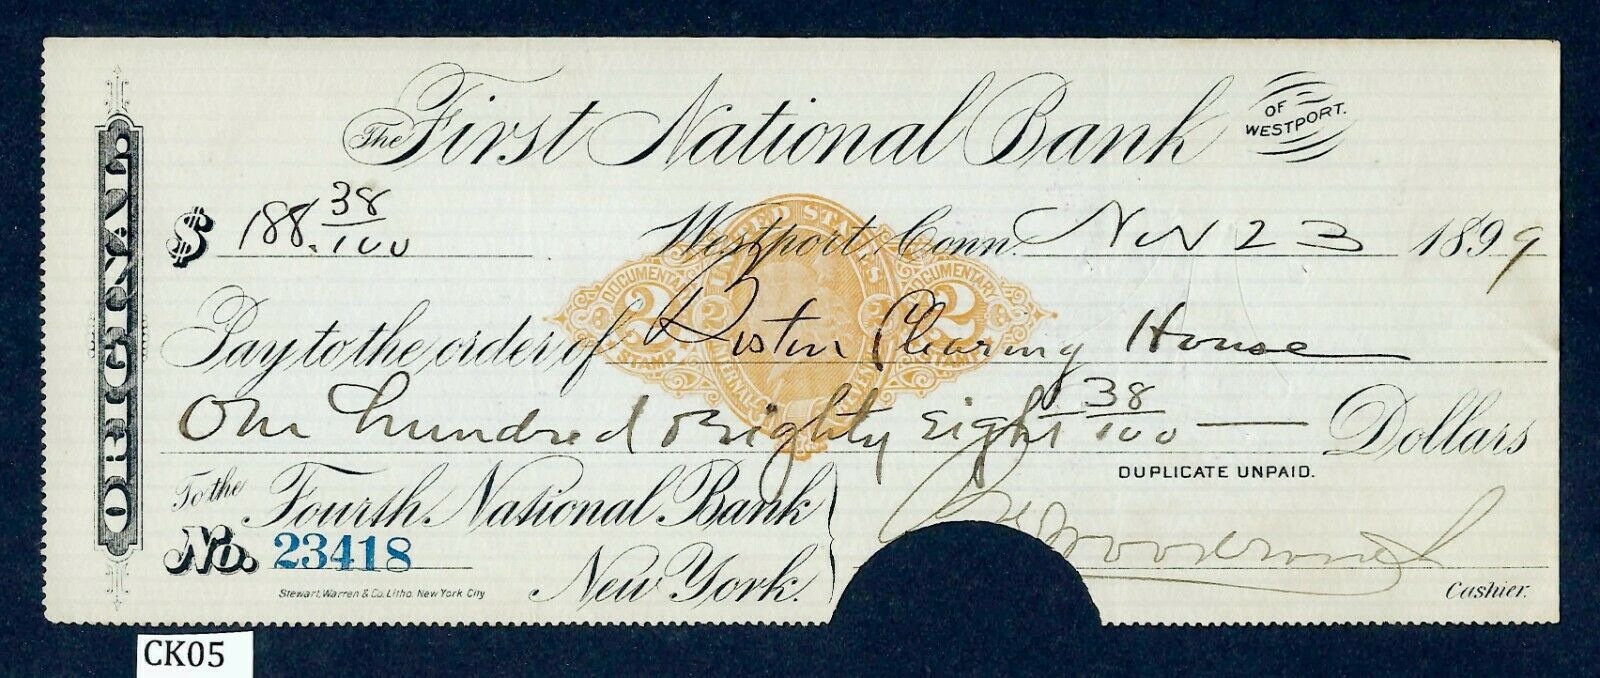 The First National Bank OF WESTPORT.
ORIGINAL
$ 188. 38/100
Westport, Conn. Nov 23 1899
UNITED STATES
DOCUMENTARY DOCUMENTARY
2 2 2 2
STAMP STAMP
INTERNAL
Pay to the order of Boston Clearing House
One hundred Eighty Eight 38/100 Dollars
DUPLICATE UNPAID.
To the Fourth National Bank
New York.
No. 23418
Cashier.
Stewart, Warren & Co. Litho. New York City
CK05